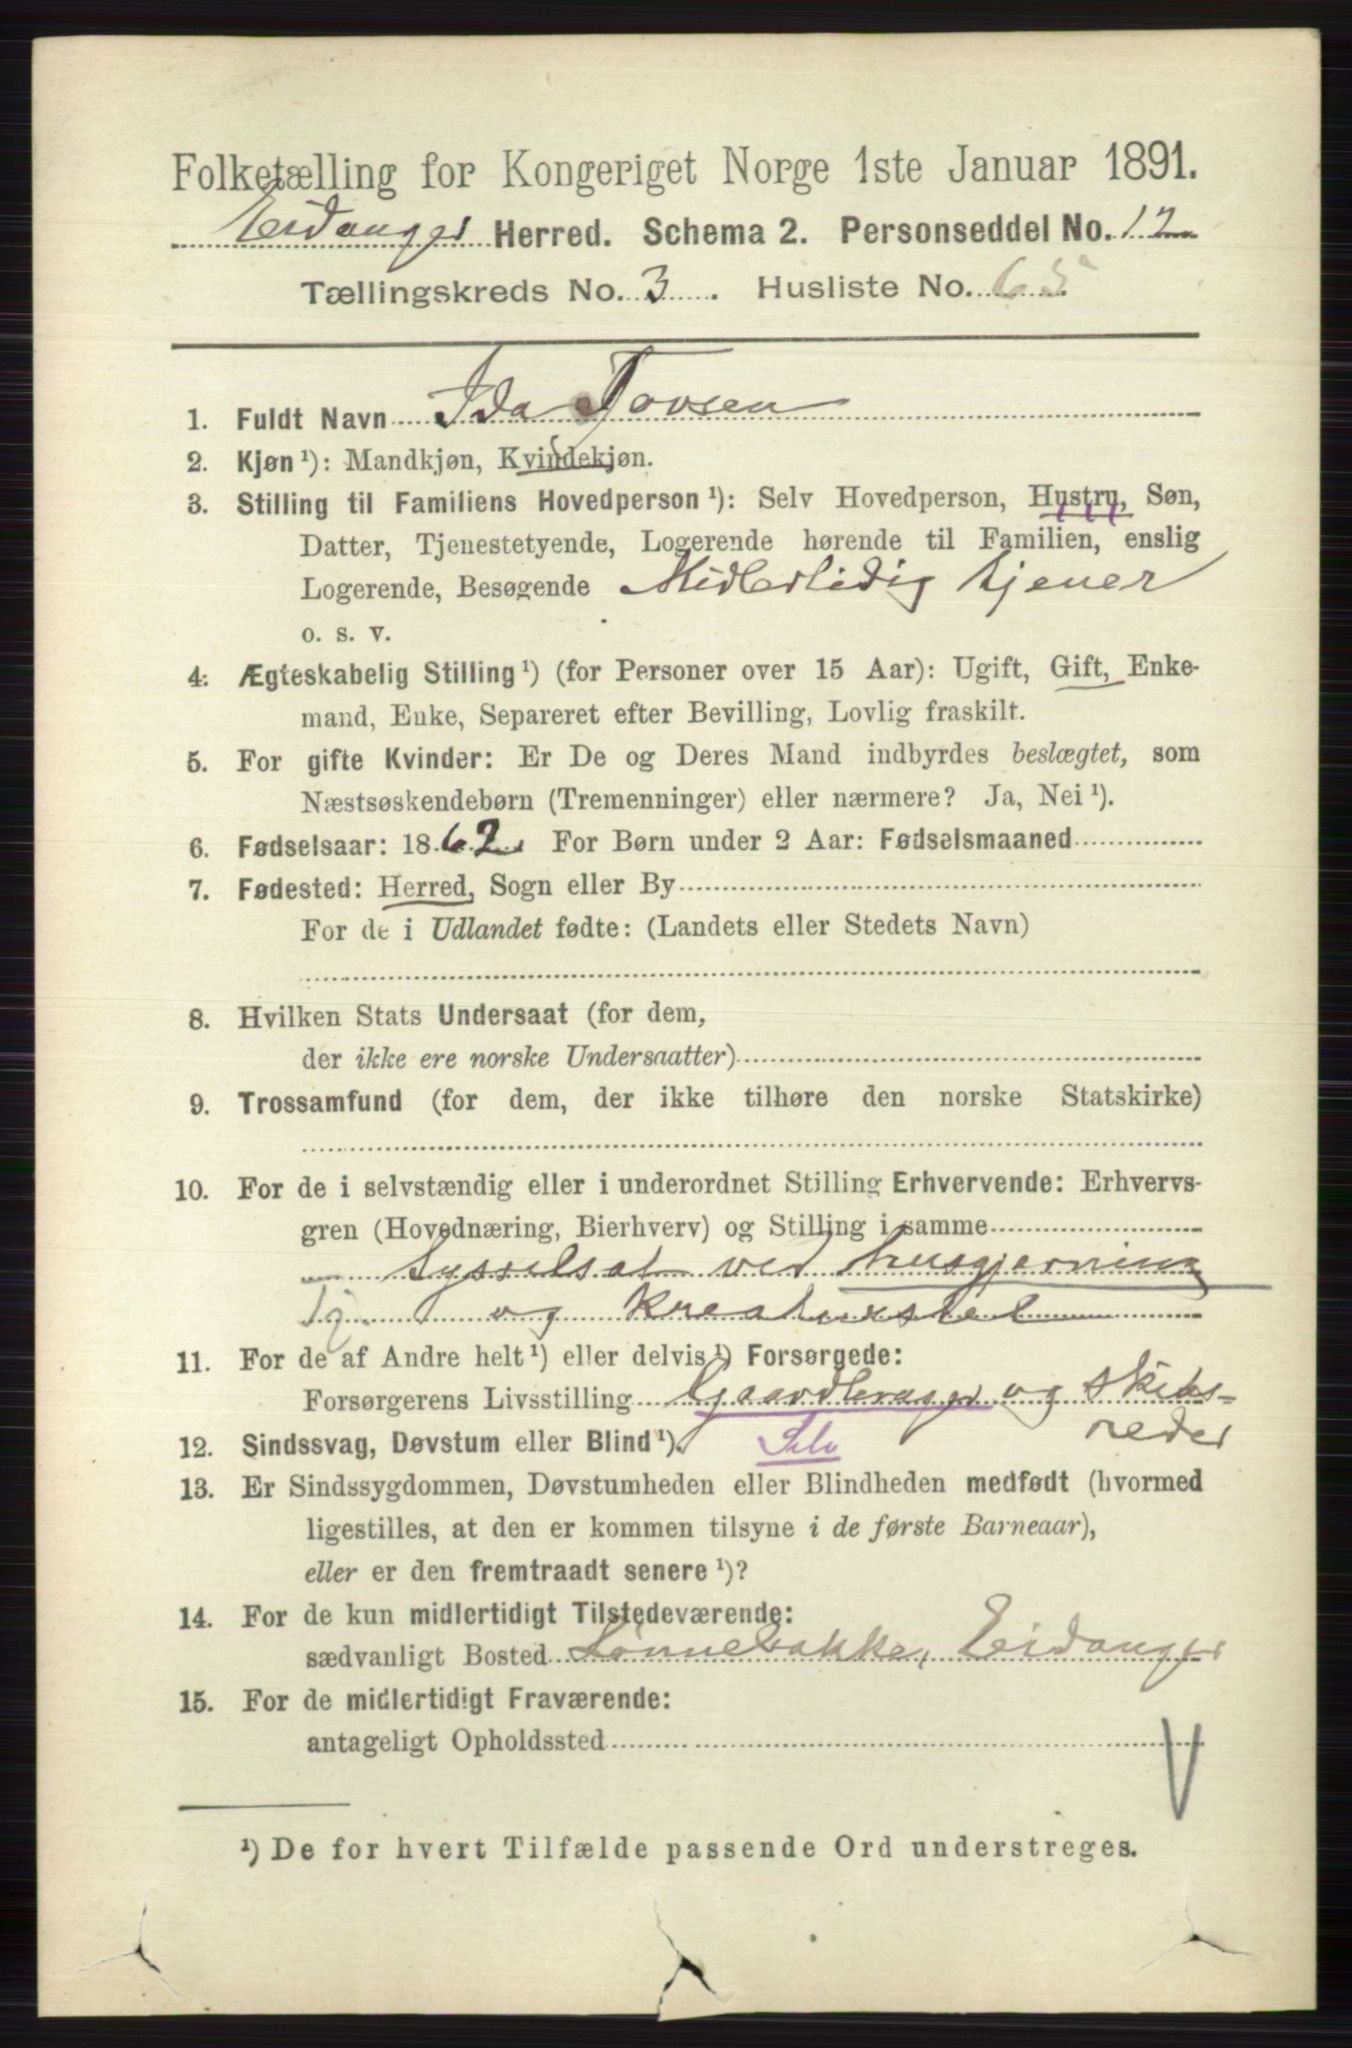 Folketælling for Kongeriget Norge 1ste Januar 1891.
Eidanger Herred. Schema 2. Personseddel No. 12
Tællingskreds No. 3. Husliste No. 65.
1. Fuldt Navn Ida Tovsen
2. Kjøn ¹): Mandkjøn, Kvindekjøn.
3. Stilling til Familiens Hovedperson ¹): Selv Hovedperson, Hustru, Søn,
Datter, Tjenestetyende, Logerende hørende til Familien, enslig
Logerende, Besøgende Midlertidig tjener
o. s. v.
4. Ægteskabelig Stilling ¹) (for Personer over 15 Aar): Ugift, Gift, Enke-
mand, Enke, Separeret efter Bevilling, Lovlig fraskilt.
5. For gifte Kvinder: Er De og Deres Mand indbyrdes beslægtet, som
Næstsøskendebørn (Tremenninger) eller nærmere? Ja, Nei ¹).
6. Fødselsaar: 1862. For Børn under 2 Aar: Fødselsmaaned
7. Fødested: Herred, Sogn eller By
For de i Udlandet fødte: (Landets eller Stedets Navn)
8. Hvilken Stats Undersaat (for dem,
der ikke ere norske Undersaatter)
9. Trossamfund (for dem, der ikke tilhøre den norske Statskirke)
10. For de i selvstændig eller i underordnet Stilling Erhvervende: Erhvervs-
gren (Hovednæring, Bierhverv) og Stilling i samme
sysselsat ved husgjerning
Tj. og Kreaturstel
11. For de af Andre helt ¹) eller delvis ¹) Forsørgede:
Forsørgerens Livsstilling Gaardbruger og Skibs-
reder
12. Sindssvag, Døvstum eller Blind ¹). Selv
13. Er Sindssygdommen, Døvstumheden eller Blindheden medfødt (hvormed
ligestilles, at den er kommen tilsyne i de første Barneaar),
eller er den fremtraadt senere ¹)?
14. For de kun midlertidigt Tilstedeværende:
sædvanligt Bosted Lønnebakke, Eidanger
15. For de midlertidigt Fraværende:
antageligt Opholdssted
¹) De for hvert Tilfælde passende Ord understreges.